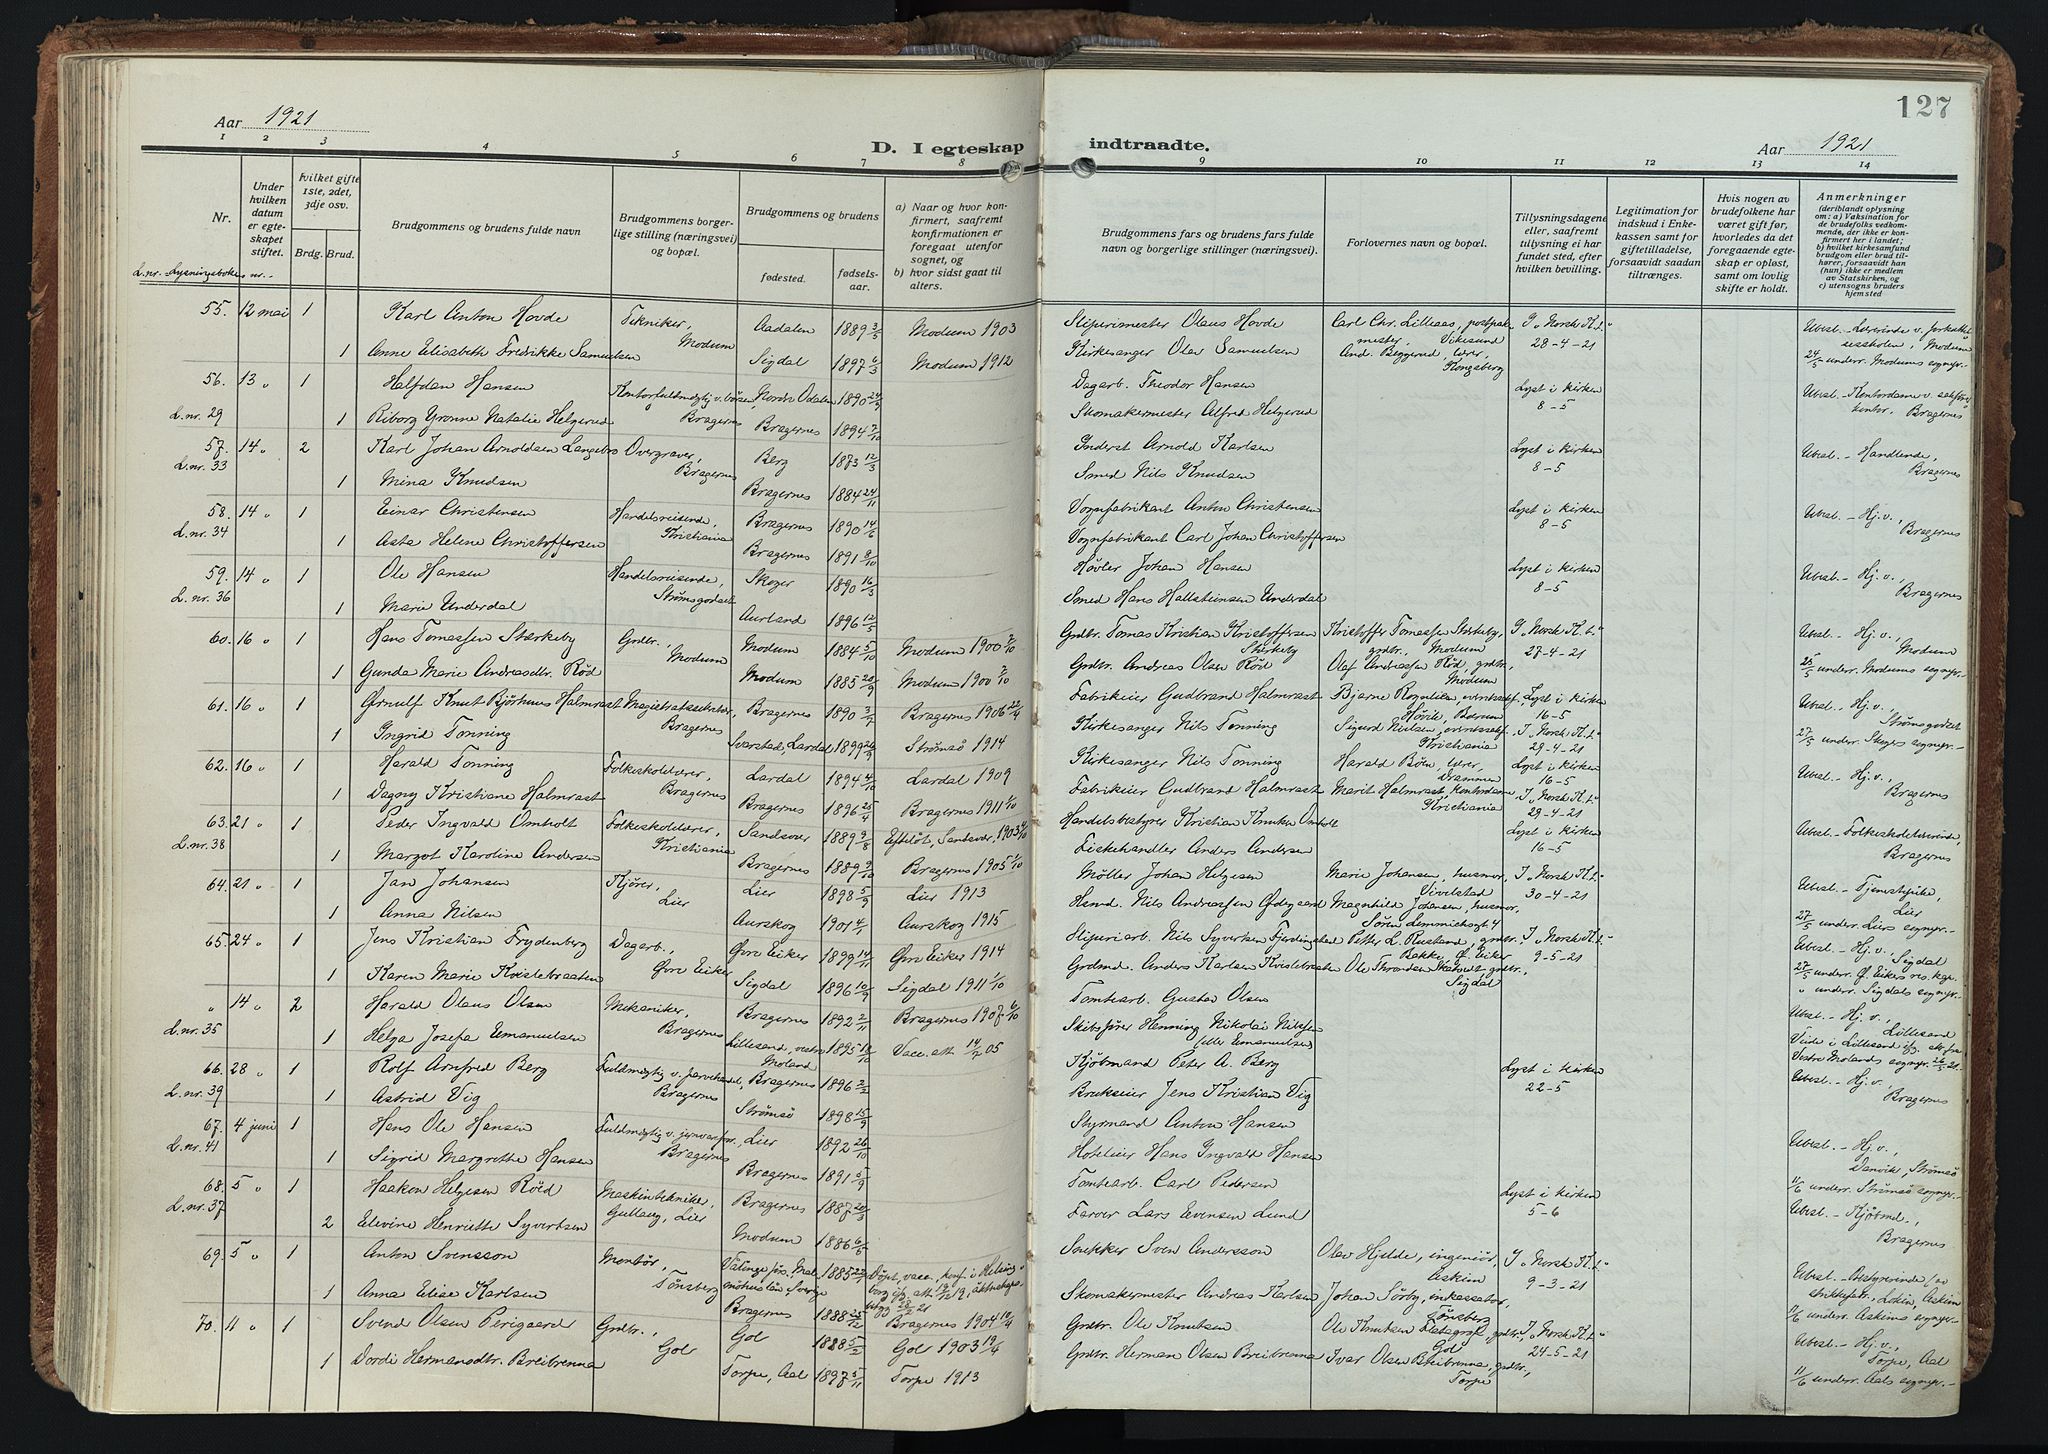 127
Aar 1921
D. I egteskap indtraadte.
Aar 1921
1 2 3 4 5 6 7 8 9 10 11 12 13 14
Nr.
Under hvilken datum er egteskapet stiftet.
hvilket gifte 1ste, 2det, 3dje osv.
Brdg. Brud.
Brudgommens og brudens fulde navn
Brudgommens borgerlige stilling (næringsvei) og bopæl.
Brudgommens og brudens
fødested.
fødselsaar.
a) Naar og hvor konfirmert, saafremt konfirmationen er foregaat utenfor sognet, og
b) hvor sidst gaat til alters.
Brudgommens fars og brudens fars fulde navn og borgerlige stillinger (næringsvei).
Forlovernes navn og bopæl.
Tillysningsdagene eller, saafremt tillysning ei har fundet sted, efter hvilken bevilling.
Legitimation for indskud i Enkekassen samt for giftetilladelse, forsaavidt saadan tiltrænges.
Hvis nogen av brudefolkene har været gift før, hvorledes da det foregaaende egteskap er opløst, samt om lovlig skifte er holdt.
Anmerkninger
(deriblandt oplysning om: a) Vaksination for de brudefolks vedkommende, der ikke er konfirmert her i landet; b) hvilket kirkesamfund brudgom eller brud tilhører, forsaavidt han (hun) ikke er medlem av Statskirken, og c) utensogns bruders hjemsted
L.nr. Lysningsbokens nr.
55. 12 mai 1 Karl Anton Hovde Tekniker, Modum Aadalen 1889 3/5 Modum 1903 Sliperimester Olaus Hovde Carl Chr. Lilleaas, postpakmester, Vikesund I "Norsk K.t." 28-4-21 Ubesl. - Lærerinde
1 Anne Elisabeth Fredrikke Samuelsen Sigdal 1897 6/3 Modum 1912 Kirkesanger Olav Samuelsen And. Beggerud, lærer, Kongsberg 24/5 underr. Modums sognepr.
56. 13 " 1 Halfdan Hansen Kontorfuldmægtig v. børsen, Bragernes Nordre Odalen 1890 24/9 Dagarb. Theodor Hansen Lyst i kirken 8-5 Ubesl. - Kontordame v. sakførerkontor, Bragernes
L.nr. 29 1 Riborg Gronne Natalie Helgerud Bragernes 1894 7/10 Skomakermester Alfred Helgerud
57. 14 " 2 Karl Johan Arnoldsen Langebro Overgraver, Bragernes Berg 1873 12/3 Inderst Arnold Karlsen Lyst i kirken 8-5 Ubesl. - Handlende, Bragernes
L.nr. 33 1 Mina Knudsen Bragernes 1884 24/11 Smed Nils Knudsen
58. 14 " 1 Einar Christensen Handelsreisende, Kristiania Bragernes 1890 14/6 Vognfabrikant Anton Christensen Lyst i kirken 8-5 Ubesl. - Hj.v., Bragernes
L.nr. 34 1 Asta Helene Christoffersen Bragernes 1891 8/10 Vognfabrikant Carl Johan Christoffersen
59. 14 " 1 Ole Hansen Handelsreisende, Strømsgodset Skoger 1890 16/3 Høvler Johan Hansen Lyst i kirken 8-5 Ubesl. - Hj.v., Bragernes
L.nr. 36 1 Marie Underdal Aurland 1896 12/5 Smed Hans Hallsteinsen Underdal
60. 16 " 1 Hans Tomassen Stærkeby Grdbr., Modum Modum 1884 5/10 Modum 1900 7/10 Grdbr. Tomas Kristian Kristoffersen Stærkeby Kristoffer Tomassen Stærkeby, grdbr., Modum I "Norsk K.t." 27-4-21 Ubesl. - Hj.v., Modum
1 Gunda Marie Andreasdtr. Rød Modum 1885 20/9 Modum 1900 7/10 Grdbr. Andreas Olsen Rød Olaf Andreassen Rød, grdbr., Modum 25/5 underr. Modums sognepr.
61. 16 " 1 Ørnulf Knut Bjørhuus Halmrast Magistratssekretær, Bragernes Bragernes 1890 3/2 Bragernes 1906 22/4 Fabrikeier Gudbrand Halmrast Bjarne Rognlien, Høvik, Bærum Lyst i kirken 16-5 Ubesl. - Hj.v., Strømsgodset
1 Ingrid Tonning Svarstad, Lardal 1899 26/9 Strømsø 1914 Kirkesanger Nils Tonning Sigurd Nielsen, Kristiania I "Norsk K.t." 29-4-21 27/5 underr. Skogers sognepr.
62. 16 " 1 Harald Tonning Folkeskolelærer, Bragernes Lardal 1894 4/10 Lardal 1909 Kirkesanger Nils Tonning Harald Bøen, lærer, Drammen Lyst i kirken 16-5 Ubesl. - Hj.v., Bragernes
1 Dagny Kristiane Halmrast Bragernes 1896 25/4 Bragernes 1911 1/10 Fabrikeier Gudbrand Halmrast Marit Halmrast, kontordame, Kristiania I "Norsk K.t." 29-4-21
63. 21 " 1 Peder Ingvald Omholt Folkeskolelærer, Kristiania Sandsver 1889 9/8 Efteløt, Sandsver, 1903 4/10 Handelsbestyrer Kristian Knutsen Omholt Lyst i kirken 16-5 Ubesl. - Folkeskolelærerinde, Bragernes
L.nr. 38 1 Margot Karoline Andersen Bragernes 1889 9/10 Bragernes 1905 1/10 Fiskehandler Anders Andersen
64. 21 " 1 Jan Johansen Kjører, Lier Lier 1898 5/9 Lier 1913 Møller Johan Helgesen Marie Johansen, husmor, Sivilstad I "Norsk K.t." 30-4-21 Ubesl. - Tjenestepike, Lier
1 Anna Nilsen Aurskog 1901 4/1 Aurskog 1915 Hsmd. Nils Andreassen Ødegaard Magnhild Johansen, husmor, Søren Lemmichsgt 4 27/5 underr. Liers sognepr.
65. 24 " 1 Jens Kristian Frydenberg Dagarb., Øvre Eiker Øvre Eiker 1899 14/11 Øvre Eiker 1914 Sliperiarb. Nils Syvertsen Fjerdingstad Petter L. Rustand, grdbr., Bakke, Ø. Eiker I "Norsk K.t." 9-5-21 Ubesl. - Hj.v., Sigdal
1 Karen Marie Kvislebraaten Sigdal 1896 10/9 Sigdal 1911 1/10 Grdmd. Anders Karlsen Kvislebraaten Ole Thronsen Skatvedt, grdbr., Sigdal 27/5 underr. Ø. Eikers res. kap. " underr. Sigdals sognepr.
" 14 " 2 Harald Olaus Olsen Mekaniker, Bragernes Bragernes 1892 2/11 Bragernes 1907 6/10 Tomtearb. Gustav Olsen Ubesl. - Hj.v., Lillesand
L.nr. 35 1 Helga Josefa Emanuelsen Lillesand, vestre Moland 1895 18/10 Vacc. att. 14/2 05 Skibsfører Henning Nikolai Nilssen (eller Emanuelsen) Viede i Lillesand ifg. att. fra Vestre Molands sognepr. 26/5 21.
66. 28 " 1 Rolf Arnfred Berg Fuldmægtig v. farvehandel, Bragernes Bragernes 1896 2/2 Kjøbmand Peter A. Berg Lyst i kirken 22-5 Ubesl. - Hj.v., Bragernes
L.nr. 39 1 Astrid Vig Strømsø 1898 15/9 Brukseier Jens Kristian Vig
67. 4 juni 1 Hans Ole Hansen Fuldmægtig v. jernvarefor., Bragernes Lier 1892 26/10 Styrmand Anton Hansen Ubesl. - Hj.v., Danvik, Strømsø
L.nr. 41 1 Sigrid Margrethe Hansen Bragernes 1891 5/9 Hoteleier Hans Ingvald Hansen 11/6 underr. Strømsø sognepr.
68. 5 " 1 Haakon Helgesen Røed Maskintekniker, Gullaug, Lier Bragernes 1887 20/3 Tomtearb. Carl Pedersen Lyst i kirken 5-6 Ubesl. - Kjøbmd., Bragernes
L.nr. 37 2 Elevine Henriette Syvertsen Modum 1886 6/5 Farver Lars Evensen Lund
69. 5 " 1 Anton Svensson Montør, Tønsberg Välinge förs. Malmöhus län Sverige 1885 22/7 Døpt, vacc., konf. i Helsingborg ifg. att. 19/12 19, Snekker Sven Andersson Olav Hjelde, ingeniør, Askim I "Norsk K.t." 9-3-21 Ubesl. - Bestyrerinde
1 Anna Elise Karlsen Bragernes 1888 25/12 Bragernes 1904 10/4 Skomakermester Andreas Karlsen Johan Sørby, inkassator, Tønsberg 11/6 underr. Askims sognepr.
70. 4 " 1 Svend Olsen Perigaard Grdbr., Gol Gol 1888 5/2 Gol 1903 19/4 Grdbr. Ole Knutsen Ole Knutsen Flatagraf, grdbr., Gol I "Norsk K.t." 24-5-21 Ubesl. - Hj.v., Torpe, Aal
1 Dordi Hermansdtr. Breibrenna Torpe, Aal 1897 5/11 Torpe 1913 Grdbr. Herman Olsen Breibrenna Ivar Olsen Breibrenna, grdbr., Torpe 11/6 underr. Aals sognepr.